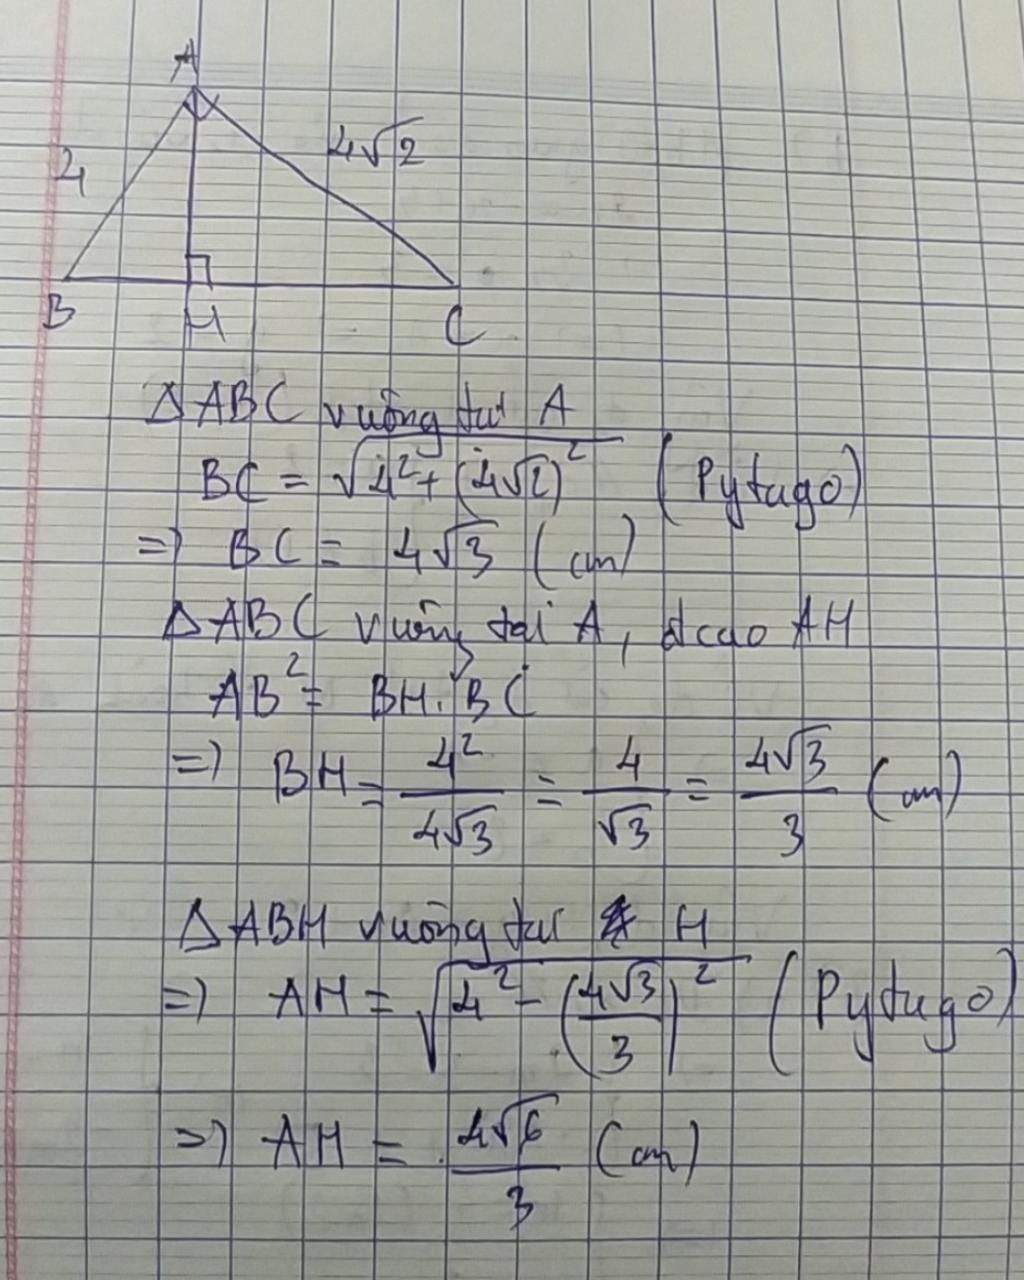 A
4
4√2
B
H
C
Δ ABC vuông tại A
BC = √(4² + (4√2)²) (Pytago)
=> BC = 4√3 (cm)
Δ ABC vuông tại A, đcao AH
AB² = BH.BC
=> BH = 4²/4√3 = 4/√3 = 4√3/3 (cm)
Δ ABH vuông tại H
=> AH = √(4² - (4√3/3)²) (Pytago)
=> AH = 4√6/3 (cm)